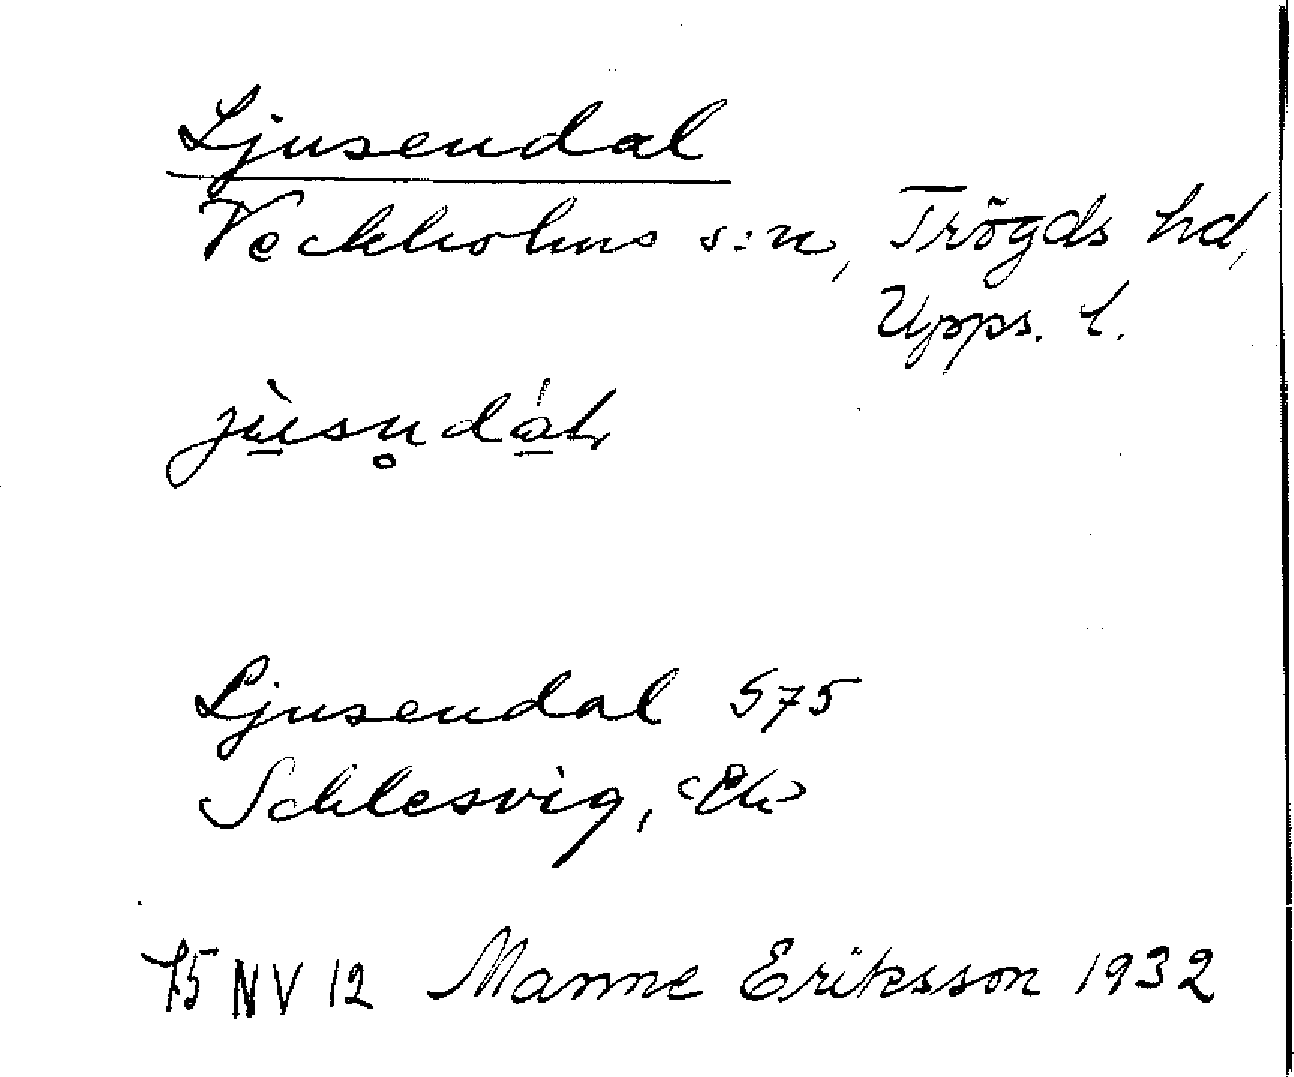 Ljusendal
Veckholms s:n, Trögds hd,
Upps. l.
jùsn̥dál
Ljusendal 575
Schlesvig,
75 NV 12 Manne Eriksson 1932